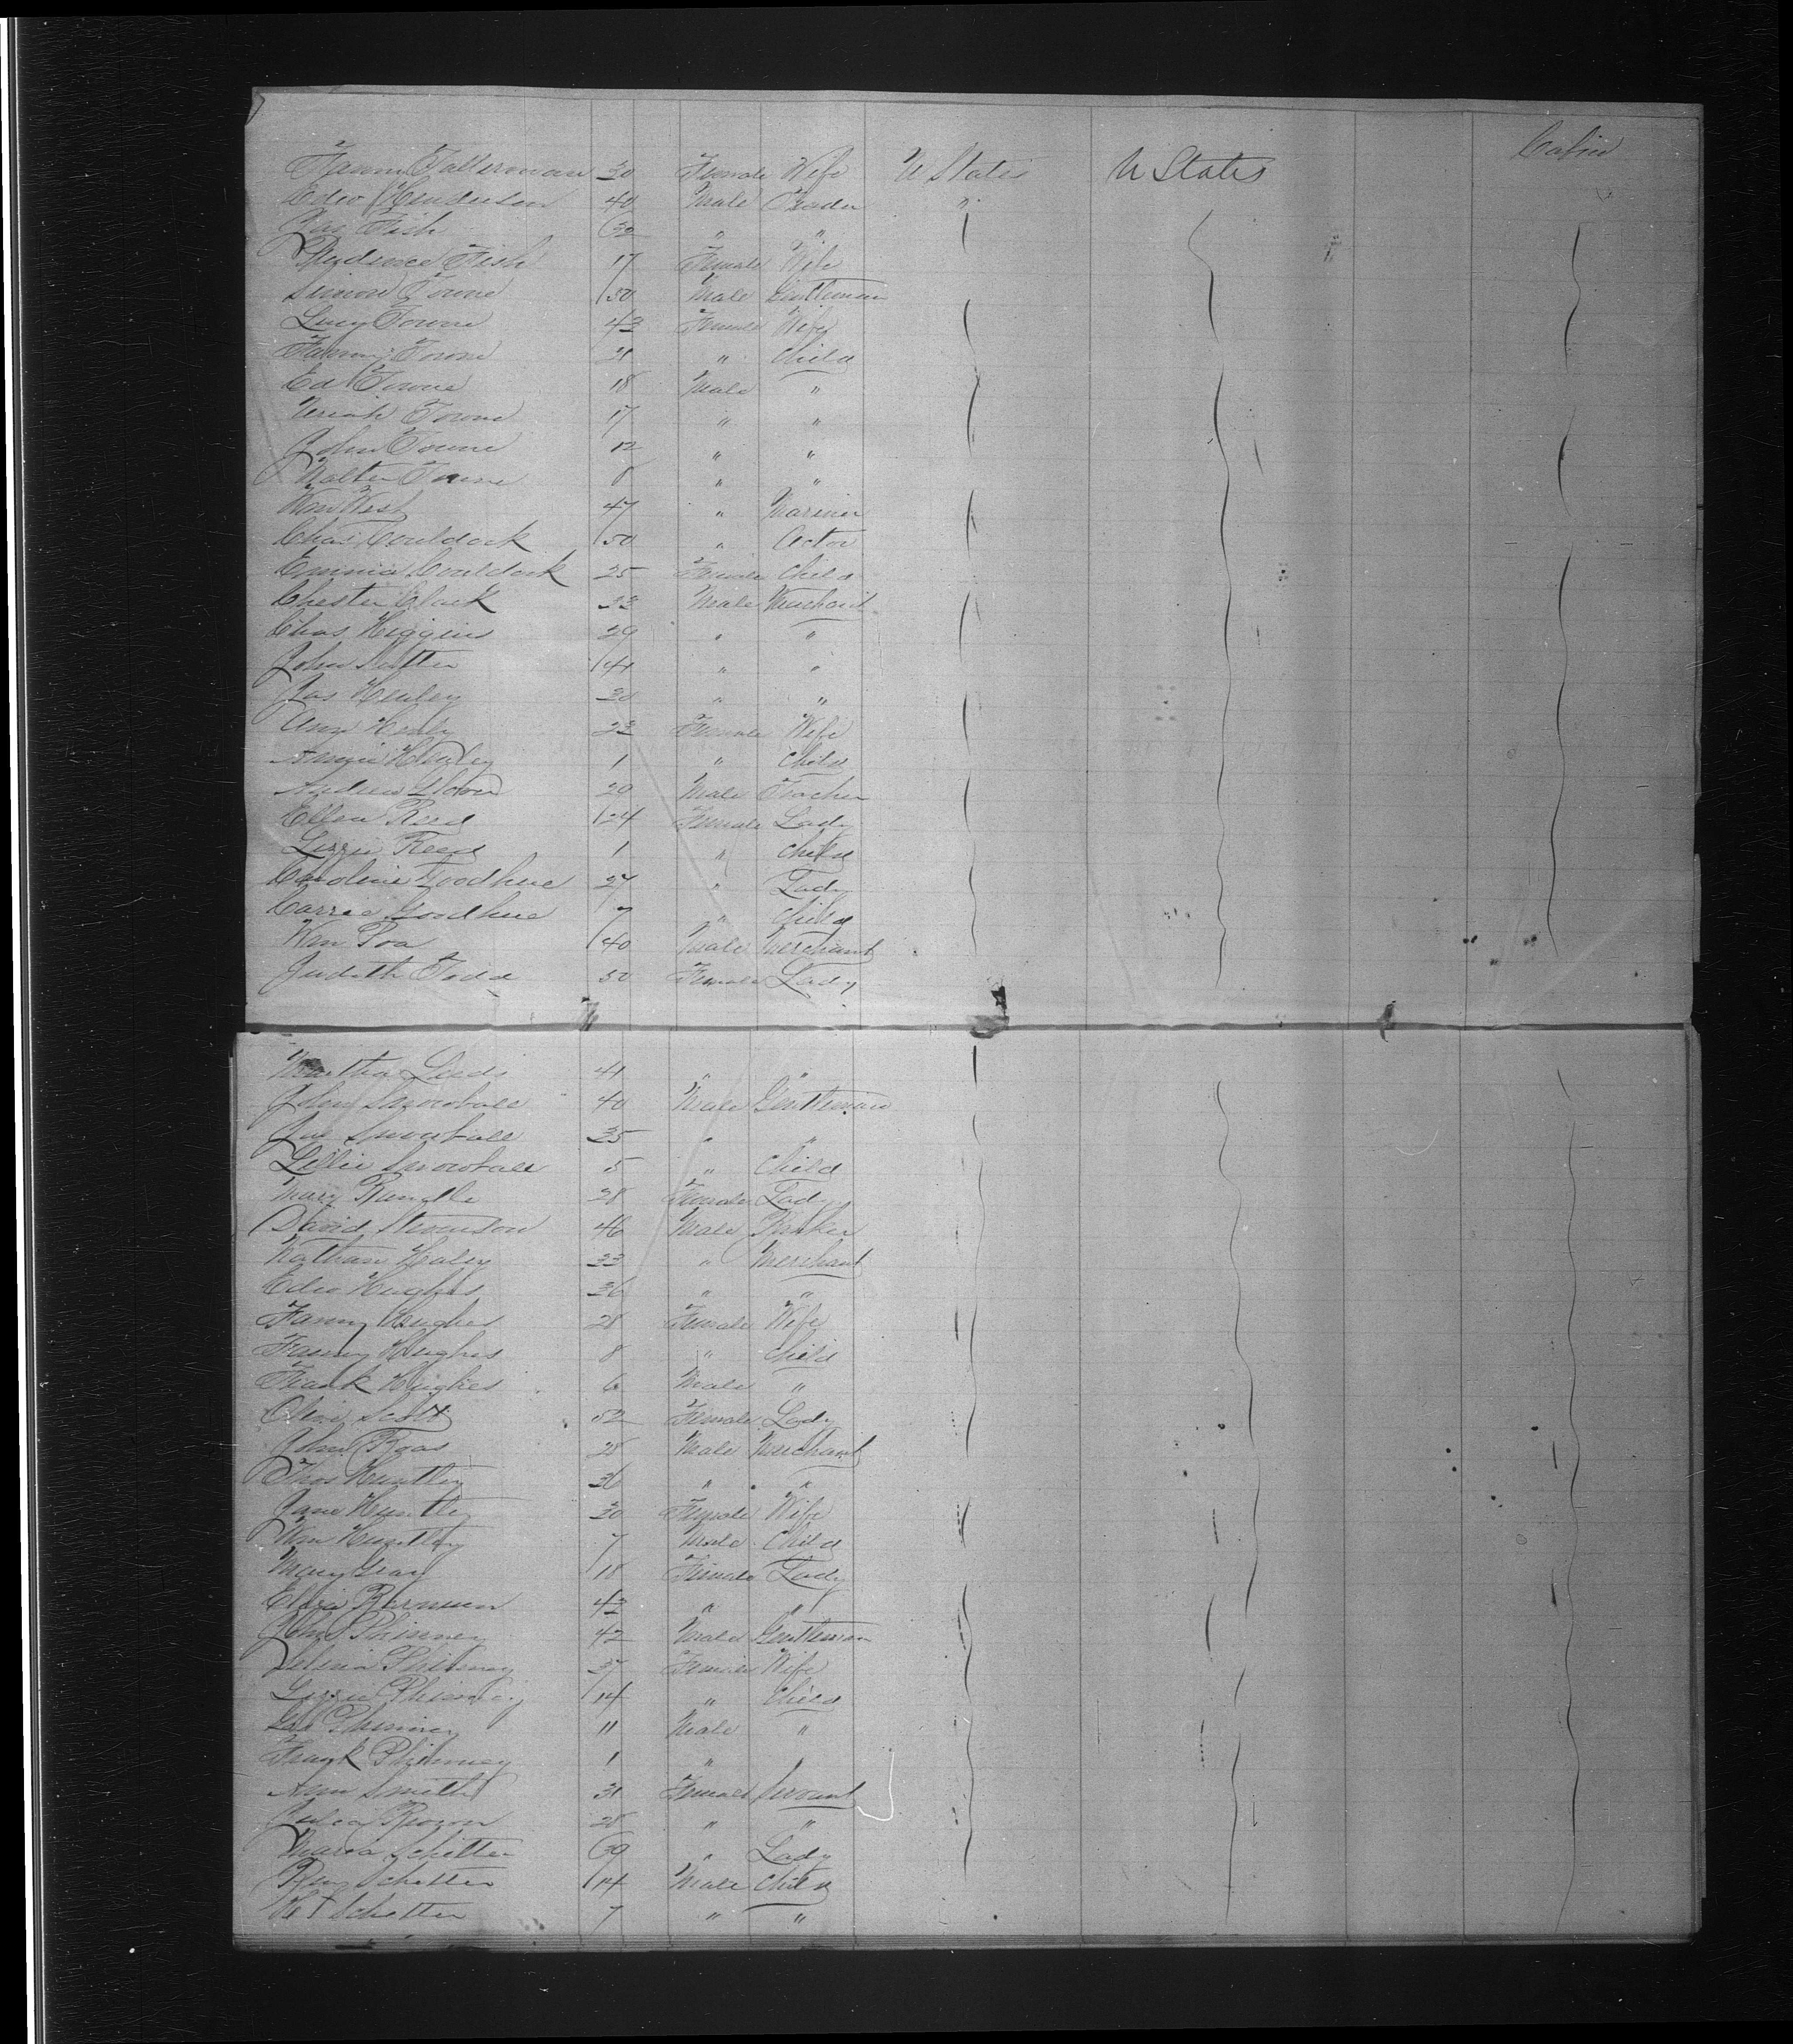 Fanny Falterman 30 Female Wife U States U States Cabin
Edw Henderson 40 Male Trader "
Jas Fish 32 " "
Prudence Fish 17 Female Wife
Simon Towne 50 Male Gentleman
Lucy Towne 43 Female Wife
Fanny Towne 21 " Child
Ed Towne 18 Male "
Uriah Towne 17 " "
John Towne 12 " "
Walter Towne 8 " "
Wm West 47 " Mariner
Chas Couldock 50 " Actor
Emma Couldock 25 Female Child
Chester Clark 33 Male Merchant
Chas Higgins 29 " "
John 41 " "
Jas Henley 30 " "
Ann Henly 23 Female Wife
Angie Henley 1 " Child
Andrew Glover 20 Male Teacher
Ellen Reed 24 Female Lady
Lizzie Reed 1 " Child
Caroline Goodhue 27 " Lady
Carrie Goodhue 7 " Child
Wm 40 Male Merchant
Judith Todd 50 Female Lady
Martha Leeds 41 " "
John Snowball 40 Male Gentleman
Jos Snowball 35 " "
Lillie Snowball 5 " Child
Mary 28 Female Lady
David Stevenson 46 Male Banker
Nathan Haley 33 " Merchant
Edw Hughes 36 " "
Fanny Hughes 28 Female Wife
Fanny Hughes 8 " Child
Frank Hughes 6 Male "
Olive Scott 52 Female Lady
John Ross 28 Male Merchant
Thos Huntley 36 " "
Jane Huntley 30 Female Wife
Wm Huntley 7 Male Child
Mary Gray 18 Female Lady
Eliza 43 " "
John Phinney 42 Male Gentleman
Phinney 37 Female Wife
Lizzie Phinney 14 " Child
Geo Phinney 11 Male "
Frank Phinney 1 "
Ann Smith 31 Female Servant
Julia Brown 28 " "
Maria Schetter 39 " Lady
Schetter 14 Male Child
Schetter 7 " "